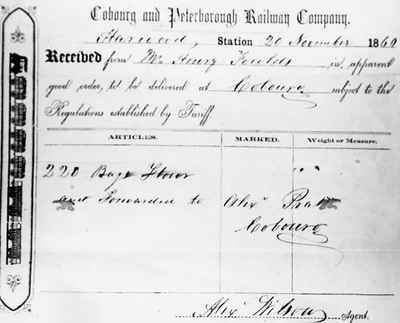 Cobourg and Peterborough Railway Company.
Harwood, Station 20 November 1860
Received from Mr Henry Foulds in apparent
good order, to be delivered at Cobourg subject to the
Regulations established by Tariff.
ARTICLES. MARKED. Weight or Measure.
220 Bags Flour " "
Forwarded to Alexr
Cobourg
Alexr Wilson Agent.